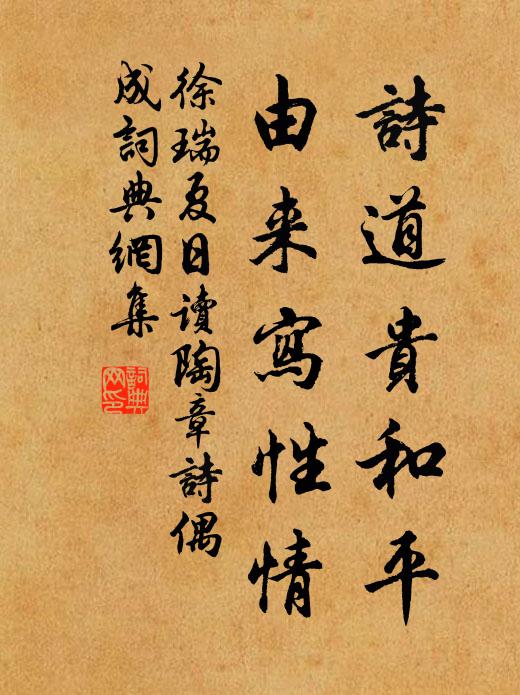 詩道貴和平
由来寫性情
徐瑞夏日讀陶韋詩偶
成詞典網集
詞典
网印